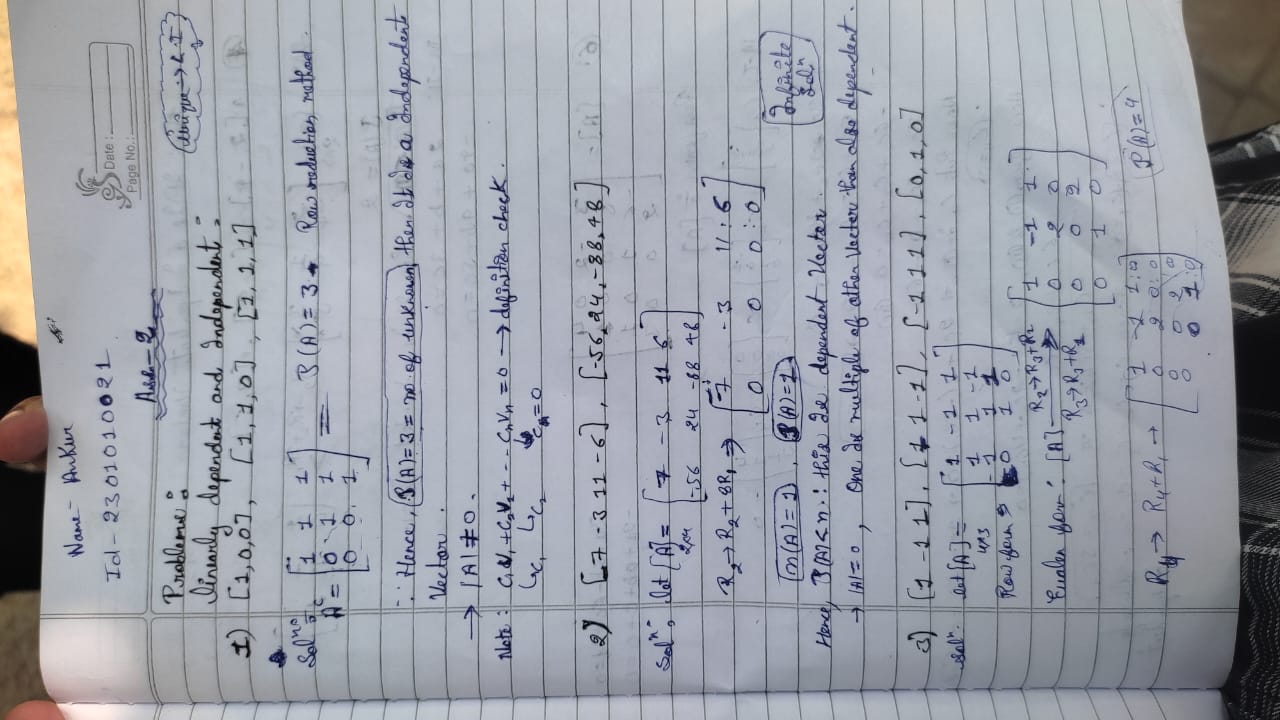 Name- Ankur
Id-2301010021
Date:
Page No.:
Ass-2
Problems:
Linearly dependent and Independent:
Unique → L.I
1) [1,0,0], [1,1,0], [1,1,1]
Solⁿ:
A = [1 1 1
0 1 1
0 0 1]
= ρ(A) = 3 Row reduction method.
∴ Hence, ρ(A) = 3 = no. of unknown, then it is a Independent
Vector.
→ |A| ≠ 0.
Note: C₁V₁ + C₂V₂ + -- CₙVₙ = 0 → definition check.
C₁ C₂ Cₙ = 0
2) [7 -3 11 -6], [-56, 24, -88, 48]
Solⁿ, let [A] = [7 -3 11 6
2×4 -56 24 -88 48]
R₂ → R₂ + 8R₁ ⇒ [7 -3 11 : 6
0 0 0 : 0]
n(A) = 1, ρ(A) = 1
Infinite
Solⁿ
Hence, ρ(A) < n ∴ this is dependent Vector.
→ |A| = 0, One is multiple of other Vector then also dependent.
3) [1 -1 1], [1 1 -1], [-1 1 1], [0, 1, 0]
Solⁿ. let [A] =
4×3
[1 -1 1
1 1 -1
-1 1 1
0 1 0]
Row form
form: [A] R₂ → R₃ + R₂
R₃ → R₃ + R₁
[1 -1 1
0 2 0
0 0 2
0 1 0]
R₄ → R₄ + R₁ → [1 -1 1 : 0
0 2 0 : 0
0 0 2 : 0
0 1 : 0]
ρ(A) = 4